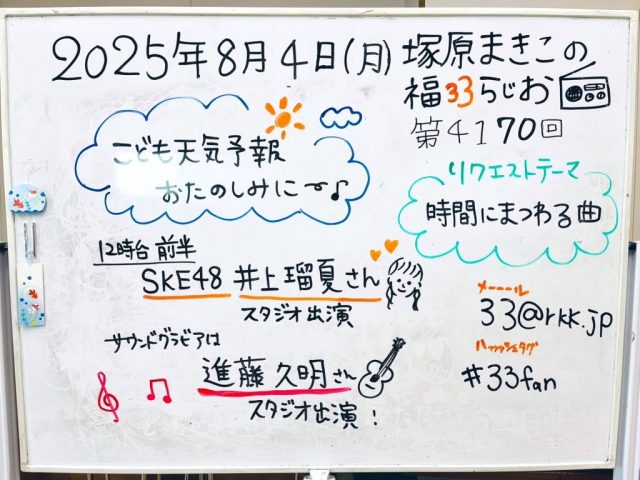 2025年8月4日(月)
塚原まきこの
福33らじお
第4170回
こども天気予報
おたのしみに〜♪
リクエストテーマ
時間にまつわる曲
12時台 前半
SKE48 井上瑠夏さん
スタジオ出演
メーーール
33@rkk.jp
サウンドグラビアは
進藤久明さん
スタジオ出演!
ハッシュタグ
#33fan